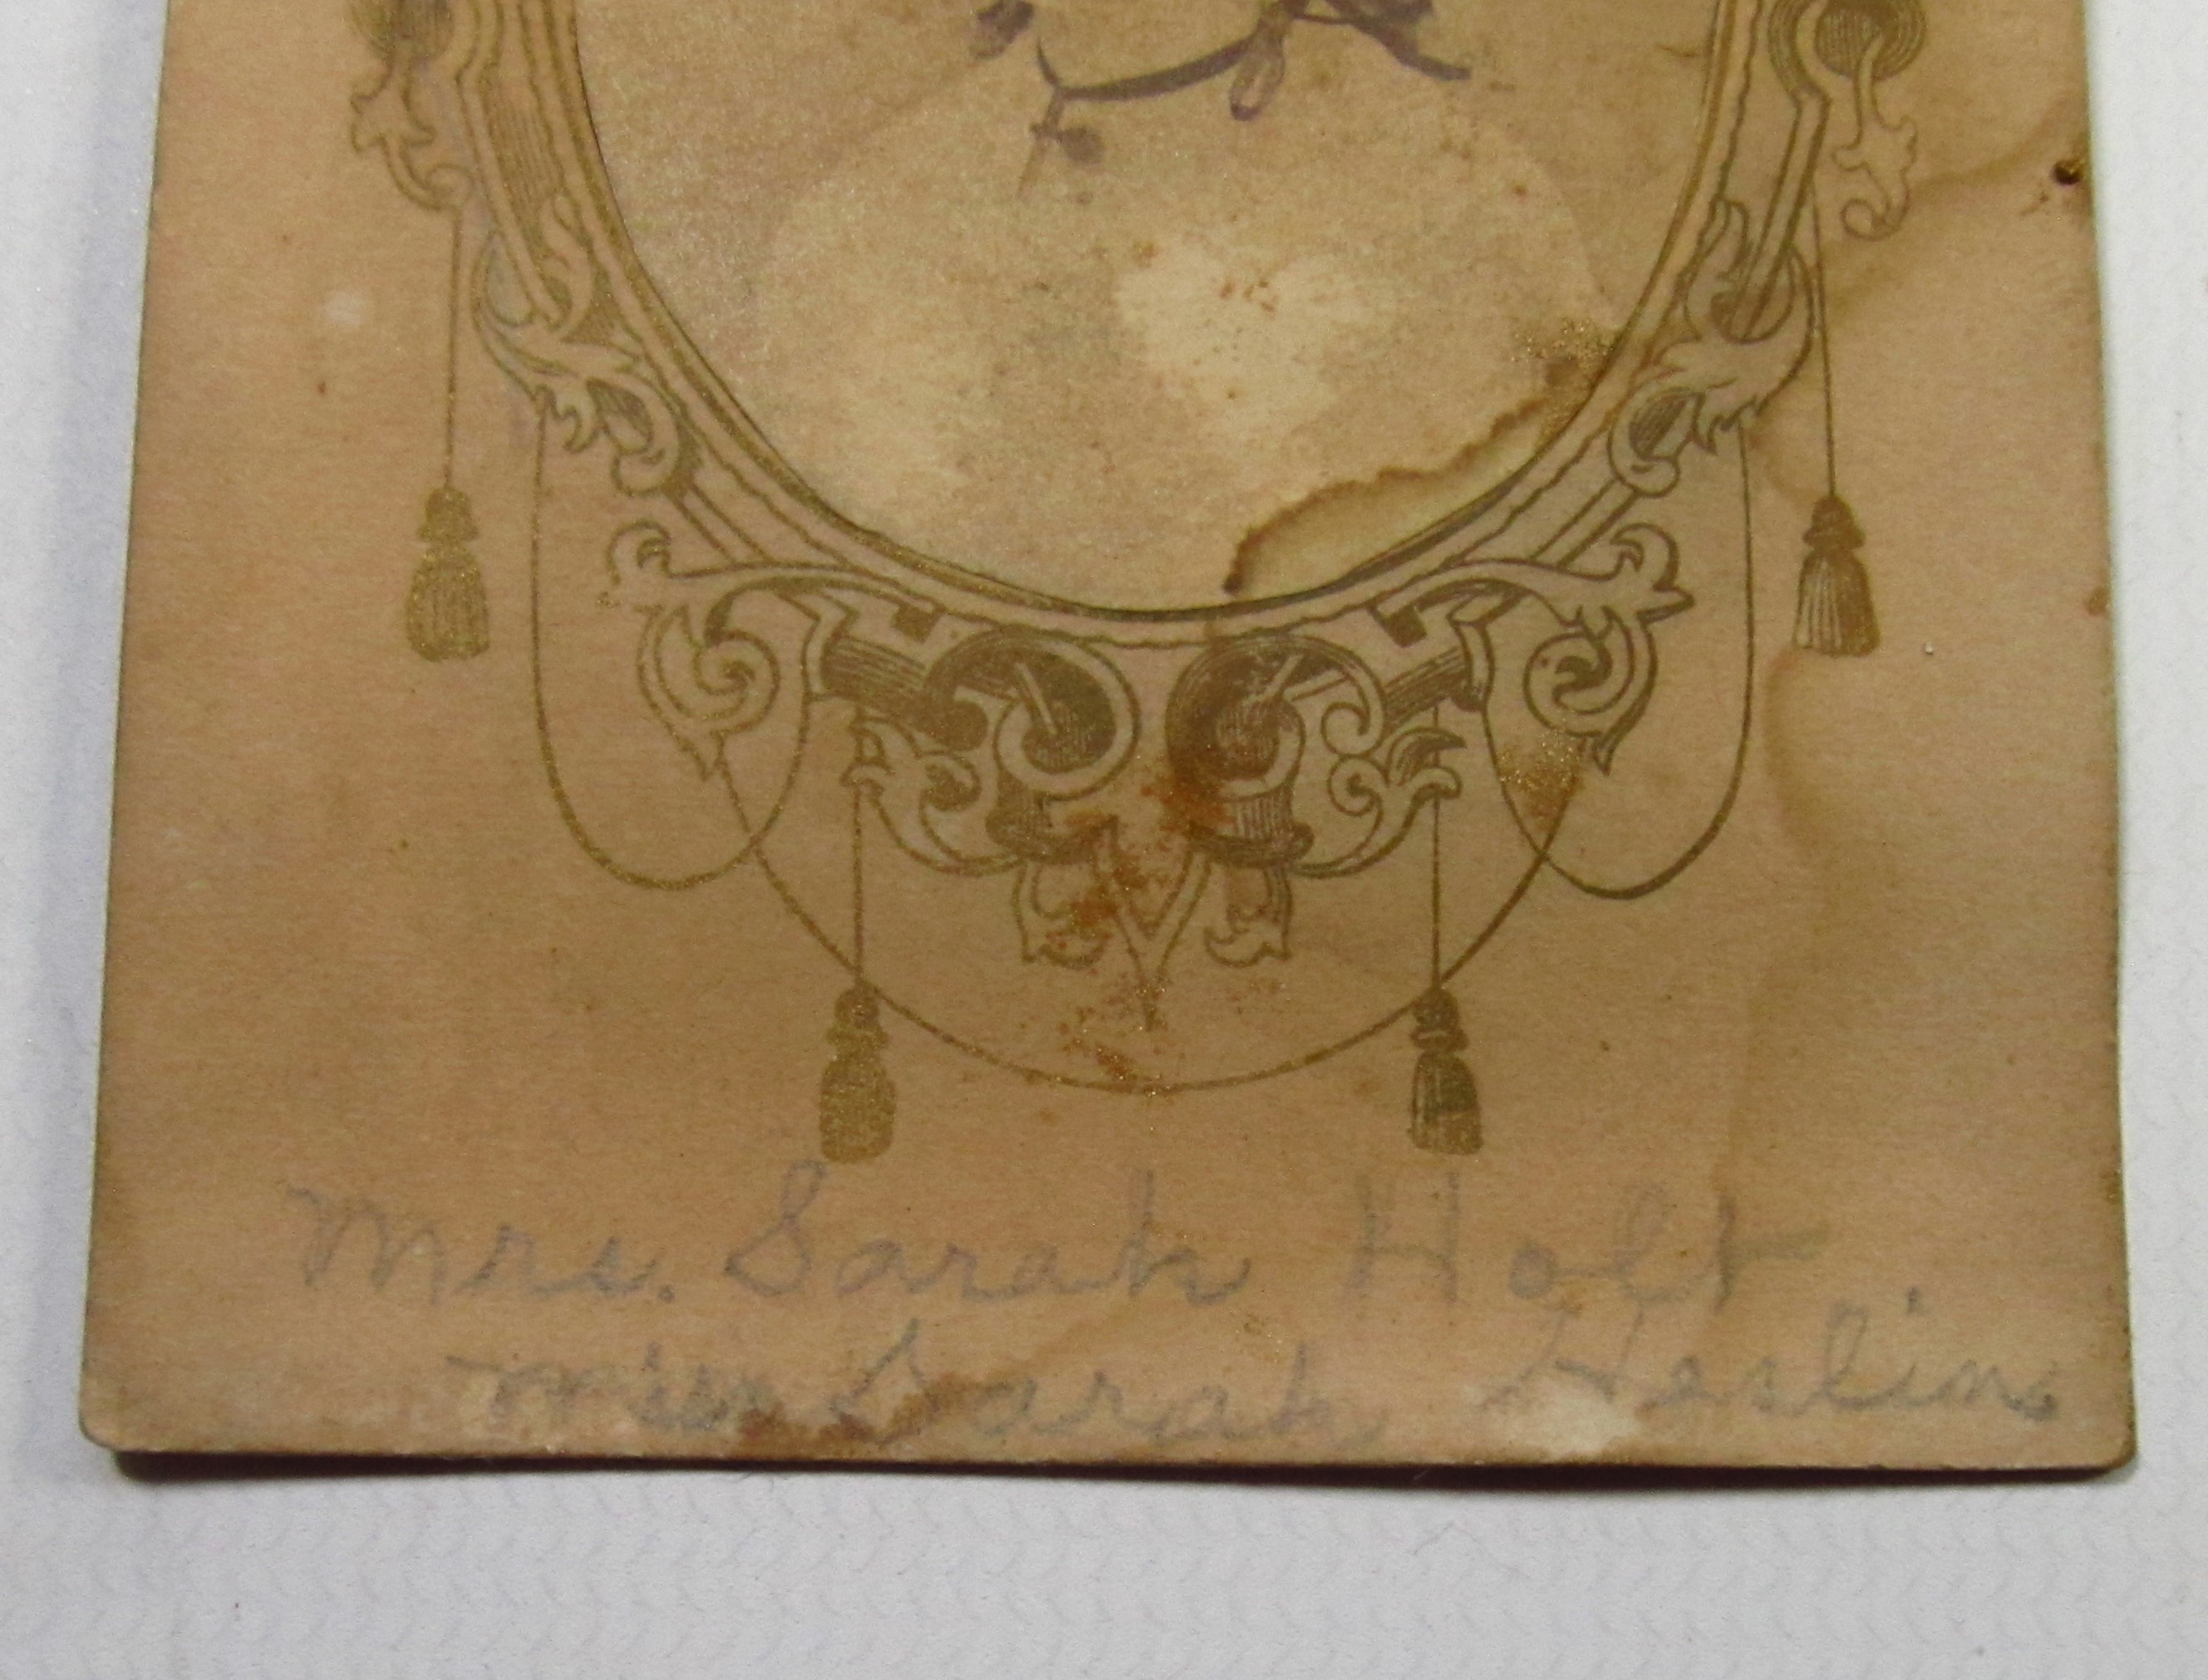 Mrs. Sarah Holt
Miss Sarah Heslin